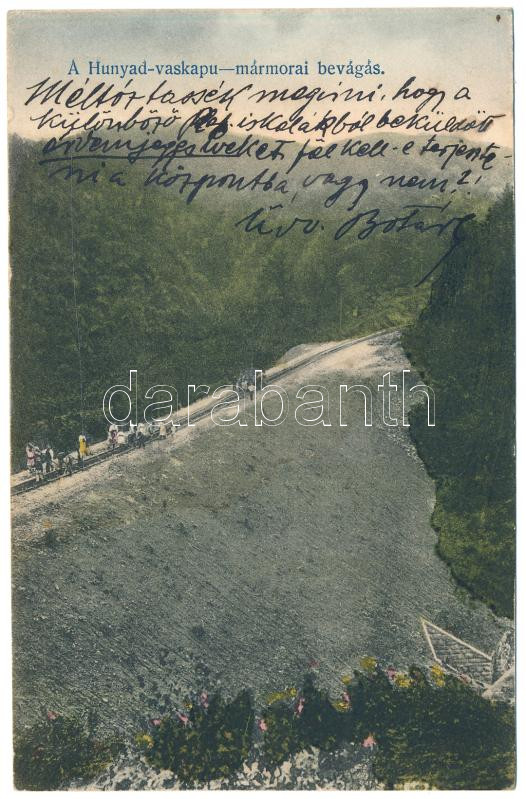 A Hunyad-vaskapu—mármorai bevágás.
Méltóztassék megírni, hogy a
különböző iskolákból beküldött
érvényjegyeiveket fel kell-e terjeszte-
ni a központba, vagy nem?!
Üdv. Botár
darabanth